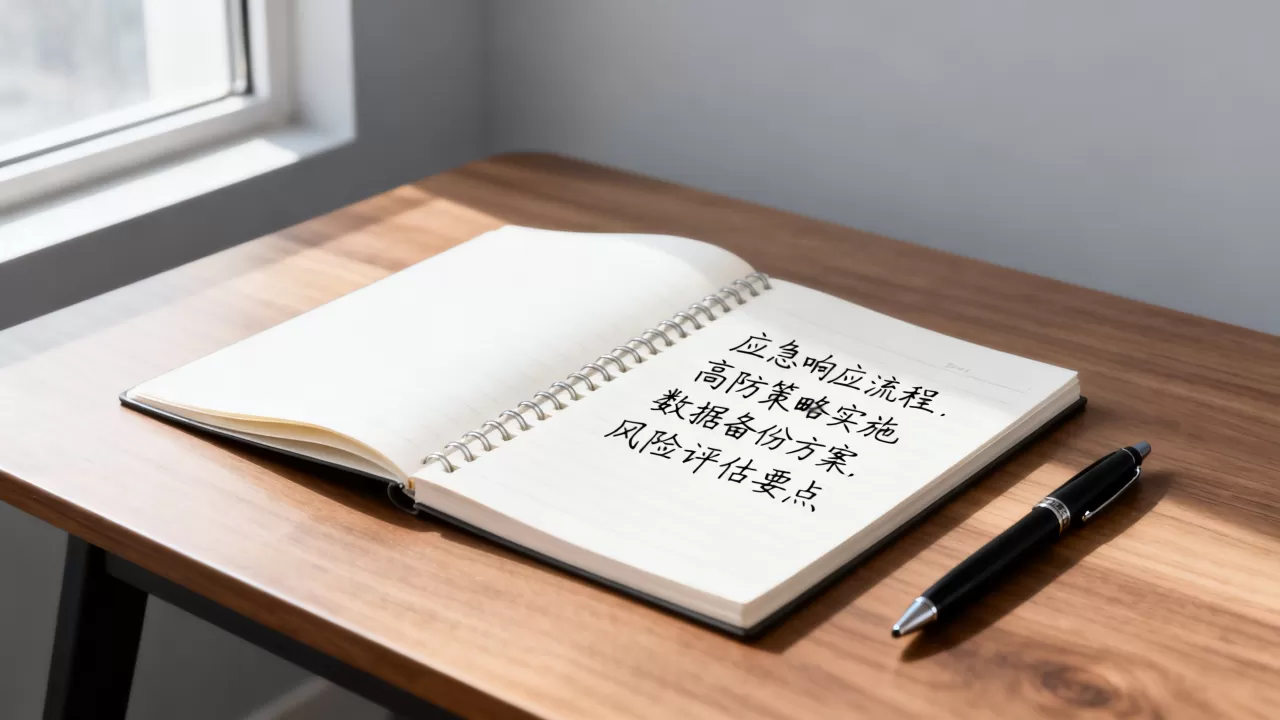 应急响应流程,
高防策略实施
数据备份方案,
风险评估要点